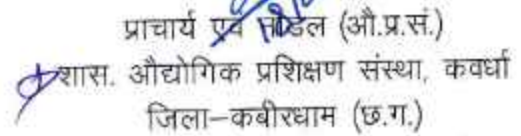 प्राचार्य एवं नोडल (औ.प्र.सं.)
शास. औद्योगिक प्रशिक्षण संस्था, कवर्धा
जिला–कबीरधाम (छ.ग.)